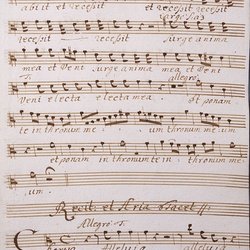 abiit et recessit et recessit
surge Sias
recessit recessit surge anima
mea et veni surge anima mea et veni
T. allegro
veni electa electa mea et ponam
te in thronum me um thronum um
et ponam in thronum te in thronum me
um.
Recit et Aria tacet
Allegro T.
alleluia alleluia